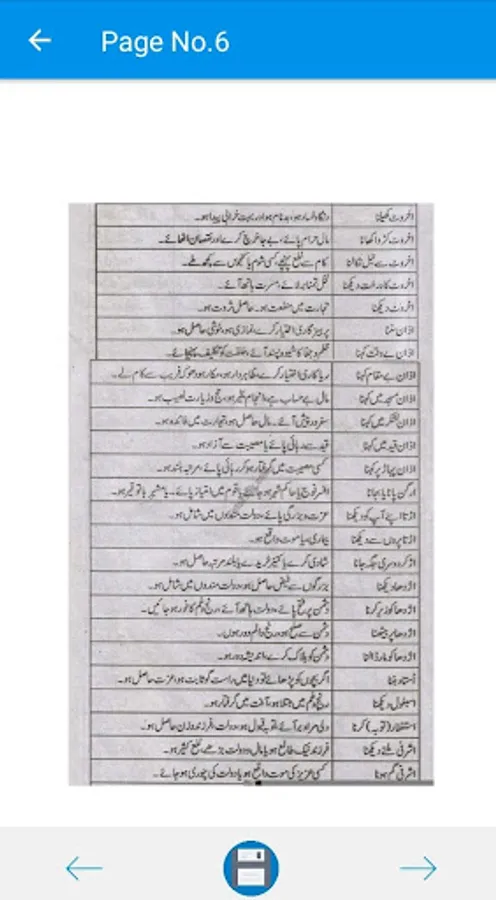 Page No.6
اخروٹ کھیلنا دنگا و فساد ہو، بدنام ہو اور بہت خرابی پیدا ہو۔
اخروٹ کڑوا کھانا مال حرام پائے، بے جا خرچ کرے اور نقصان اٹھائے۔
اخروٹ سے تیل نکالنا کام سے نفع پہنچے، کسی شوم یا کنجوس سے کچھ ملے۔
اخروٹ کا درخت دیکھنا نخل تمنا بر لائے، مسرت ہاتھ آئے۔
اخروٹ دیکھنا تجارت میں منفعت ہو۔ حاصل ثروت ہو۔
اذان سننا پرہیزگاری اختیار کرے، نمازی ہو، خوشی حاصل ہو۔
اذان بے وقت کہنا ظلم و جفا کا شیوہ پسند آئے، خلقت کو تکلیف پہنچائے۔
اذان بے مقام کہنا ریاکاری اختیار کرے، ظاہر دار ہو، مکار ہو دھوکہ فریب سے کام لے۔
اذان مسجد میں کہنا مال بے حساب ہے، انجام بخیر ہو، حج و زیارت نصیب ہو۔
اذان لشکر میں کہنا سفر در پیش آئے۔ مال حاصل ہو، تجارت میں فائدہ ہو۔
اذان قید میں کہنا قید سے رہائی پائے یا مصیبت سے آزاد ہو۔
اذان پہاڑ پر کہنا کسی مصیبت میں گرفتار ہو کر رہائی پائے، مرتبہ بلند ہو۔
ارگن پانا یا بجانا افسر فوج یا حاکم شہر ہو جائے یا قوم میں امتیاز پائے۔ یا مشیر با توقیر ہو۔
اڑتا اپنے آپ کو دیکھنا عزت و بزرگی پائے، دولت مندوں میں شامل ہو۔
اڑنا پروں سے دیکھنا بیماری، یا موت واقع ہو۔
اڑ کر دوسری جگہ جانا شادی کرے یا کنیز خریدے یا بلند مرتبہ حاصل ہو۔
اژدھا دیکھنا بزرگوں سے فیض حاصل ہو، دولت مندوں میں شامل ہو۔
اژدھا کو زیر کرنا دشمن پر فتح پائے، دولت ہاتھ آئے، رنج و غم کافور ہو جائیں۔
اژدھا پر بیٹھنا دشمن سے صلح ہو، رنج و الم دور ہوں۔
اژدھا کو مار ڈالنا دشمن کو ہلاک کرے، اندیشہ دور ہو۔
استاد بننا اگر بچوں کو پڑھائے تو دنیا میں راست گو ثابت ہو، عزت حاصل ہو۔
اسطبل دیکھنا رنج و غم میں مبتلا ہو، آفت میں گرفتار ہو۔
استغفار (توبہ) کرنا دلی مراد بر آئے، توبہ قبول ہو، دولت، فرزند و زن حاصل ہو۔
اشرفی ملے دیکھنا فرزند نیک طالع ہو یا مال و دولت بڑھے، نفع کثیر ہو۔
اشرفی گم ہونا کسی عزیز کی موت واقع ہو یا دولت کی چوری ہو جائے۔